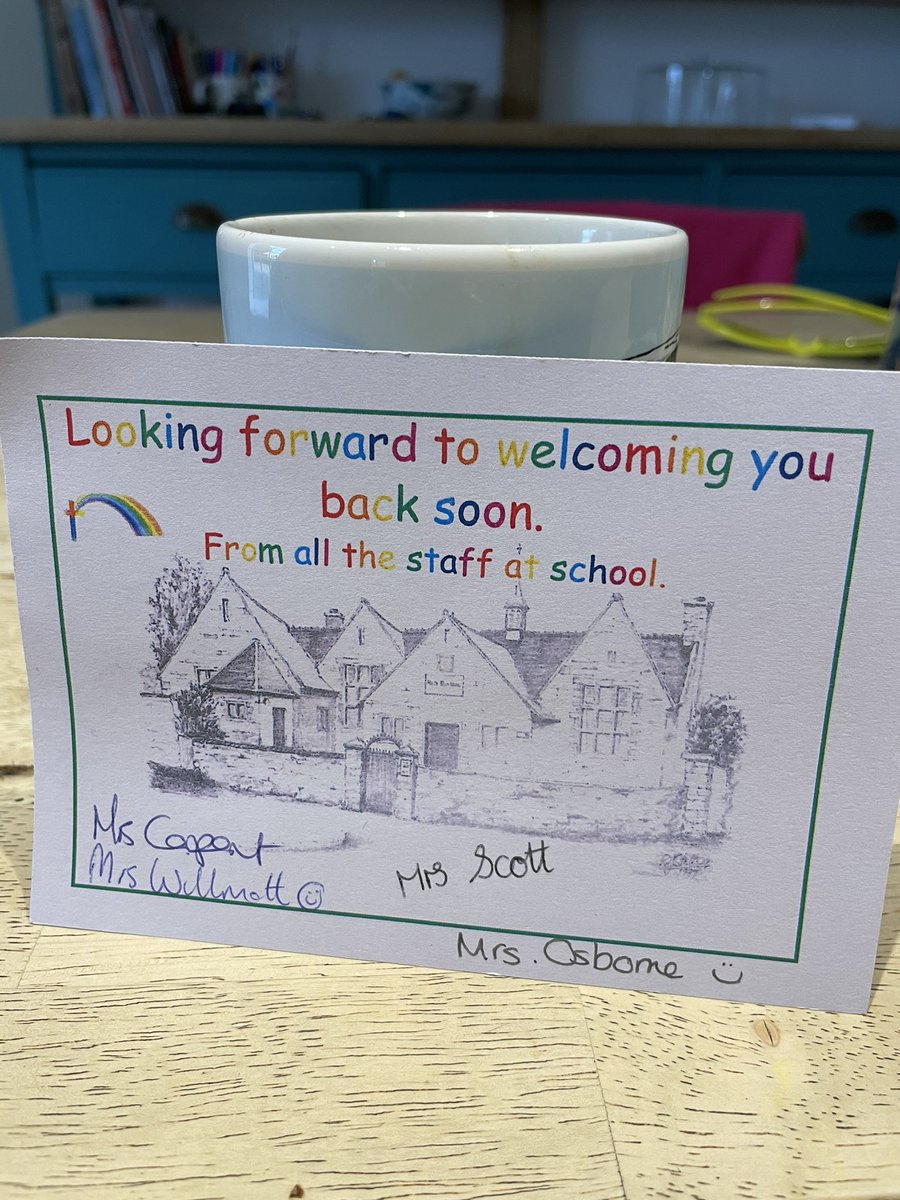 Looking forward to welcoming you
back soon.
From all the staff at school.
Mrs Scott
Mrs Willmott
Mrs. Osborne